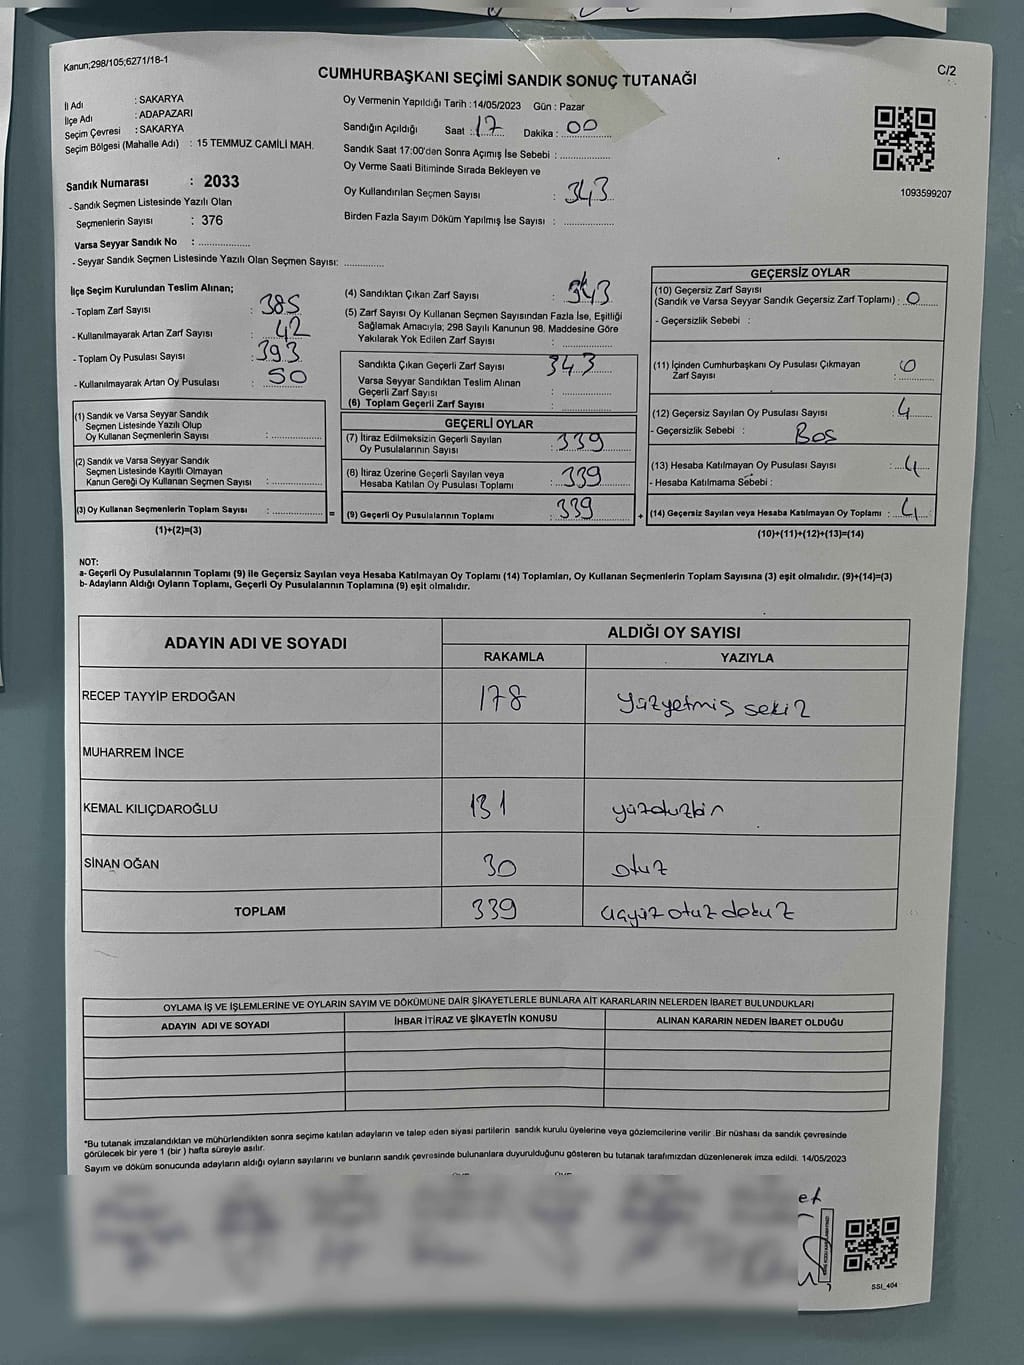 Kanun;298/105;6271/18-1
CUMHURBAŞKANI SEÇİMİ SANDIK SONUÇ TUTANAĞI
C/2
İl Adı : SAKARYA
İlçe Adı : ADAPAZARI
Seçim Çevresi : SAKARYA
Seçim Bölgesi (Mahalle Adı) : 15 TEMMUZ CAMİLİ MAH.
Sandık Numarası : 2033
- Sandık Seçmen Listesinde Yazılı Olan
Seçmenlerin Sayısı : 376
Varsa Seyyar Sandık No : ..................
- Seyyar Sandık Seçmen Listesinde Yazılı Olan Seçmen Sayısı: .............
Oy Vermenin Yapıldığı Tarih : 14/05/2023 Gün : Pazar
Sandığın Açıldığı Saat : 17 Dakika : 00
Sandık Saat 17:00'den Sonra Açımış İse Sebebi : ................
Oy Verme Saati Bitiminde Sırada Bekleyen ve
Oy Kullandırılan Seçmen Sayısı : 343
Birden Fazla Sayım Döküm Yapılmış İse Sayısı : ................
1093599207
İlçe Seçim Kurulundan Teslim Alınan;
- Toplam Zarf Sayısı : 385
- Kullanılmayarak Artan Zarf Sayısı : 42
- Toplam Oy Pusulası Sayısı : 393
- Kullanılmayarak Artan Oy Pusulası : 50
(1) Sandık ve Varsa Seyyar Sandık
Seçmen Listesinde Yazılı Olup
Oy Kullanan Seçmenlerin Sayısı : ................
(2) Sandık ve Varsa Seyyar Sandık
Seçmen Listesinde Kayıtlı Olmayan
Kanun Gereği Oy Kullanan Seçmen Sayısı : ................
(3) Oy Kullanan Seçmenlerin Toplam Sayısı : ................ =
(1)+(2)=(3)
(4) Sandıktan Çıkan Zarf Sayısı : 343
(5) Zarf Sayısı Oy Kullanan Seçmen Sayısından Fazla İse, Eşitliği
Sağlamak Amacıyla; 298 Sayılı Kanunun 98. Maddesine Göre
Yakılarak Yok Edilen Zarf Sayısı : ................
Sandıkta Çıkan Geçerli Zarf Sayısı 343
Varsa Seyyar Sandıktan Teslim Alınan
Geçerli Zarf Sayısı : ................
(6) Toplam Geçerli Zarf Sayısı : ................
GEÇERLİ OYLAR
(7) İtiraz Edilmeksizin Geçerli Sayılan
Oy Pusulalarının Sayısı : 339
(8) İtiraz Üzerine Geçerli Sayılan veya
Hesaba Katılan Oy Pusulası Toplamı : 339
(9) Geçerli Oy Pusulalarının Toplamı : 339 +
GEÇERSİZ OYLAR
(10) Geçersiz Zarf Sayısı
(Sandık ve Varsa Seyyar Sandık Geçersiz Zarf Toplamı) : 0
- Geçersizlik Sebebi :
(11) İçinden Cumhurbaşkanı Oy Pusulası Çıkmayan
Zarf Sayısı : 0
(12) Geçersiz Sayılan Oy Pusulası Sayısı : 4
- Geçersizlik Sebebi : Bos
(13) Hesaba Katılmayan Oy Pusulası Sayısı : 4
- Hesaba Katılmama Sebebi :
(14) Geçersiz Sayılan veya Hesaba Katılmayan Oy Toplamı : 4
(10)+(11)+(12)+(13)=(14)
NOT:
a- Geçerli Oy Pusulalarının Toplamı (9) ile Geçersiz Sayılan veya Hesaba Katılmayan Oy Toplamı (14) Toplamları, Oy Kullanan Seçmenlerin Toplam Sayısına (3) eşit olmalıdır. (9)+(14)=(3)
b- Adayların Aldığı Oyların Toplamı, Geçerli Oy Pusulalarının Toplamına (9) eşit olmalıdır.
ADAYIN ADI VE SOYADI ALDIĞI OY SAYISI
RAKAMLA YAZIYLA
RECEP TAYYİP ERDOĞAN 178 yüzyetmiş sekiz
MUHARREM İNCE
KEMAL KILIÇDAROĞLU 131 yüzotuzbir
SİNAN OĞAN 30 otuz
TOPLAM 339 üçyüz otuz dokuz
OYLAMA İŞ VE İŞLEMLERİNE VE OYLARIN SAYIM VE DÖKÜMÜNE DAİR ŞİKAYETLERLE BUNLARA AİT KARARLARIN NELERDEN İBARET BULUNDUKLARI
ADAYIN ADI VE SOYADI İHBAR İTİRAZ VE ŞİKAYETİN KONUSU ALINAN KARARIN NEDEN İBARET OLDUĞU
*Bu tutanak imzalandıktan ve mühürlendikten sonra seçime katılan adayların ve talep eden siyasi partilerin sandık kurulu üyelerine veya gözlemcilerine verilir .Bir nüshası da sandık çevresinde
görülecek bir yere 1 (bir ) hafta süreyle asılır.
Sayım ve döküm sonucunda adayların aldığı oyların sayılarını ve bunların sandık çevresinde bulunanlara duyurulduğunu gösteren bu tutanak tarafımızdan düzenlenerek imza edildi. 14/05/2023
SSI_404